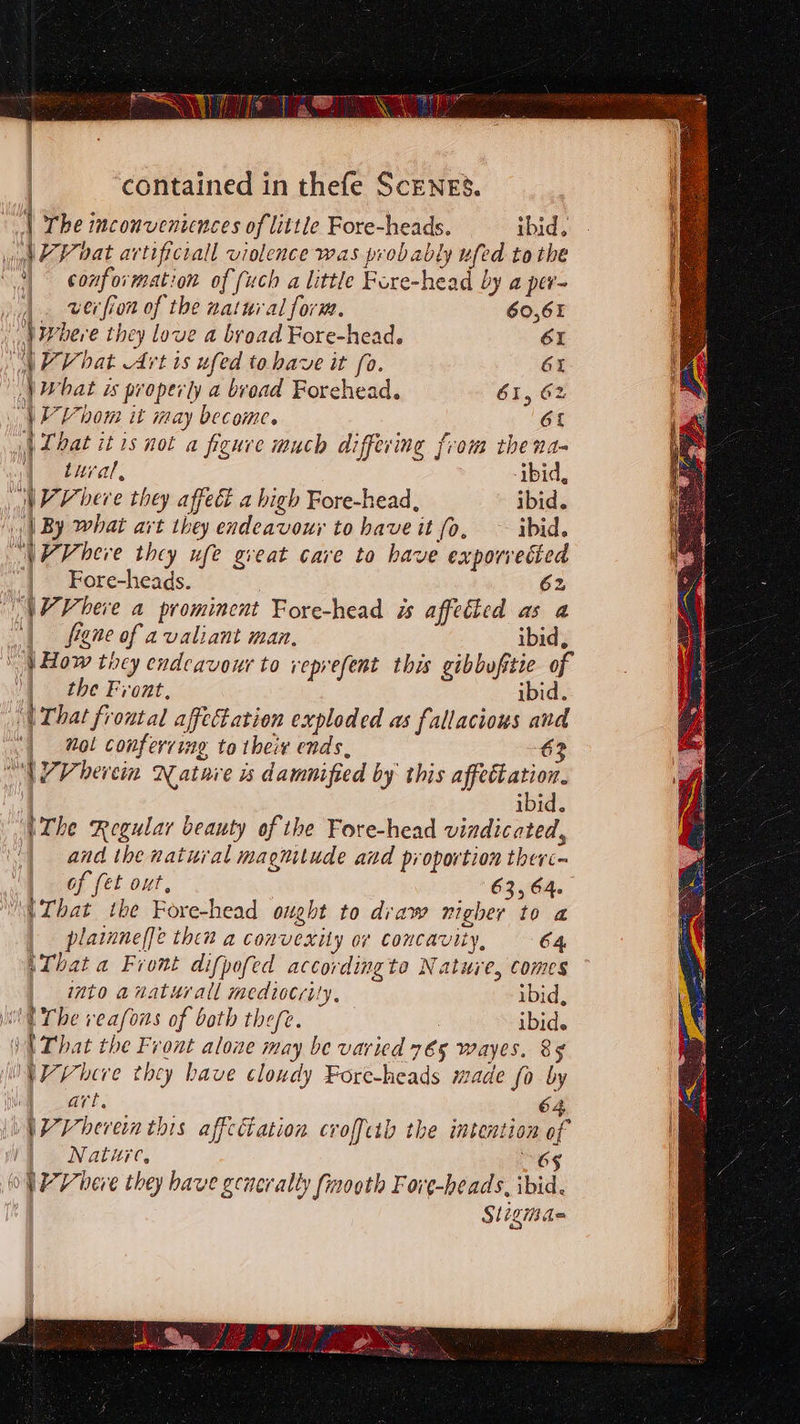 contained in theſe SCENES.
The inconveniences of little Fore-heads. ibid.
VVhat artificiall violence was probably uſed to the
conformation of ſuch a little Fore-head by a per-
verſion of the natural form. 60,61
Where they love a broad Fore-head. 61
VVhat Art is uſed to have it ſo. 61
What is properly a broad Forehead. 61, 62
VVhom it may become. 61
That it is not a figure much differing from the na-
tural, ibid,
VVhere they affect a high Fore-head, ibid.
By what art they endeavour to have it ſo, ibid.
VVhere they uſe great care to have exporrected
Fore-heads. 62
VVhere a prominent Fore-head is affected as a
ſigne of a valiant man, ibid,
How they endeavour to repreſent this gibboſitie of
the Front, ibid.
That frontal affectation exploded as fallacious and
not conferring to their ends, 63
VVherein Nature is damnified by this affectation.
ibid.
The Regular beauty of the Fore-head vindicated,
and the natural magnitude and proportion there-
of ſet out, 63, 64.
That the Fore-head ought to draw nigher to a
plainneſſe then a convexity or concavity, 64
That a Front diſpoſed according to Nature, comes
into a naturall mediocrity. ibid,
The reaſons of both theſe. ibid.
That the Front alone may be varied 765 wayes. 85
VVhere they have cloudy Fore-heads made ſo by
art, 64
VVherein this affectation croſſeth the intention of
Nature, 65
VVhere they have generally ſmooth Fore-heads, ibid.
Stigma-